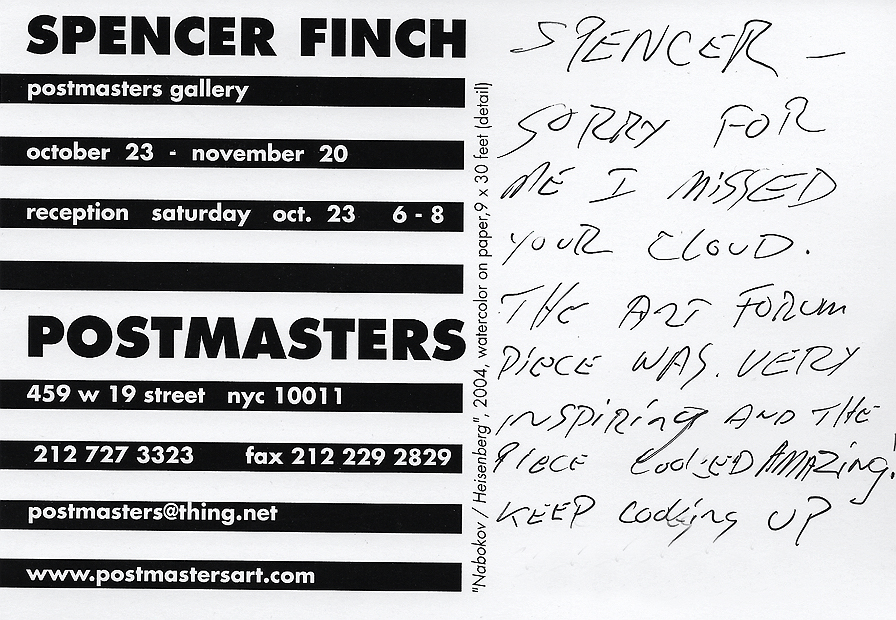 SPENCER FINCH
postmasters gallery
october 23 - november 20
reception saturday oct. 23 6 - 8
POSTMASTERS
459 w 19 street nyc 10011
212 727 3323 fax 212 229 2829
postmasters@thing.net
www.postmastersart.com
"Nabokov / Heisenberg", 2004, watercolor on paper,9 x 30 feet (detail)
SPENCER —
SORRY FOR
ME I MISSED
YOUR CLOUD.
THE ART FORUM
PIECE WAS. VERY
INSPIRING AND THE
PIECE LOOKED AMAZING!
KEEP LOOKING UP